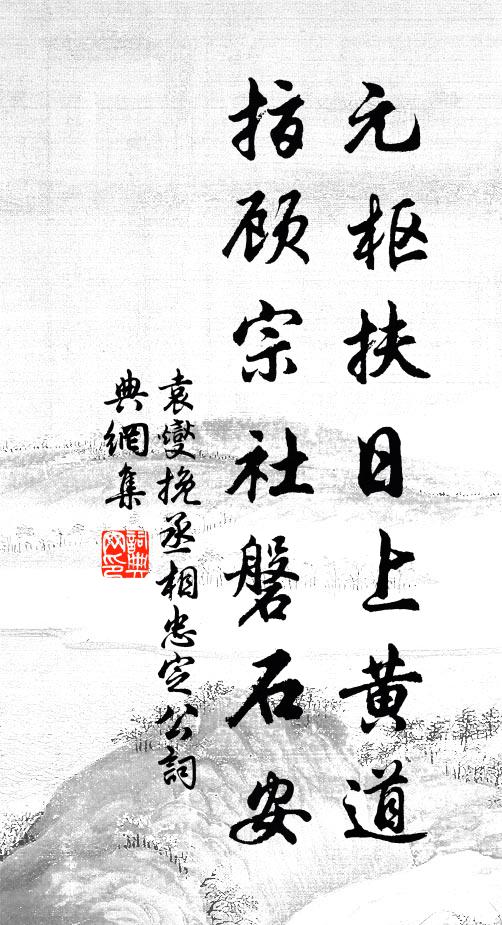 元枢扶日上黄道
指顾宗社磐石安
袁燮挽丞相忠定公詞
典網集
詞典網印